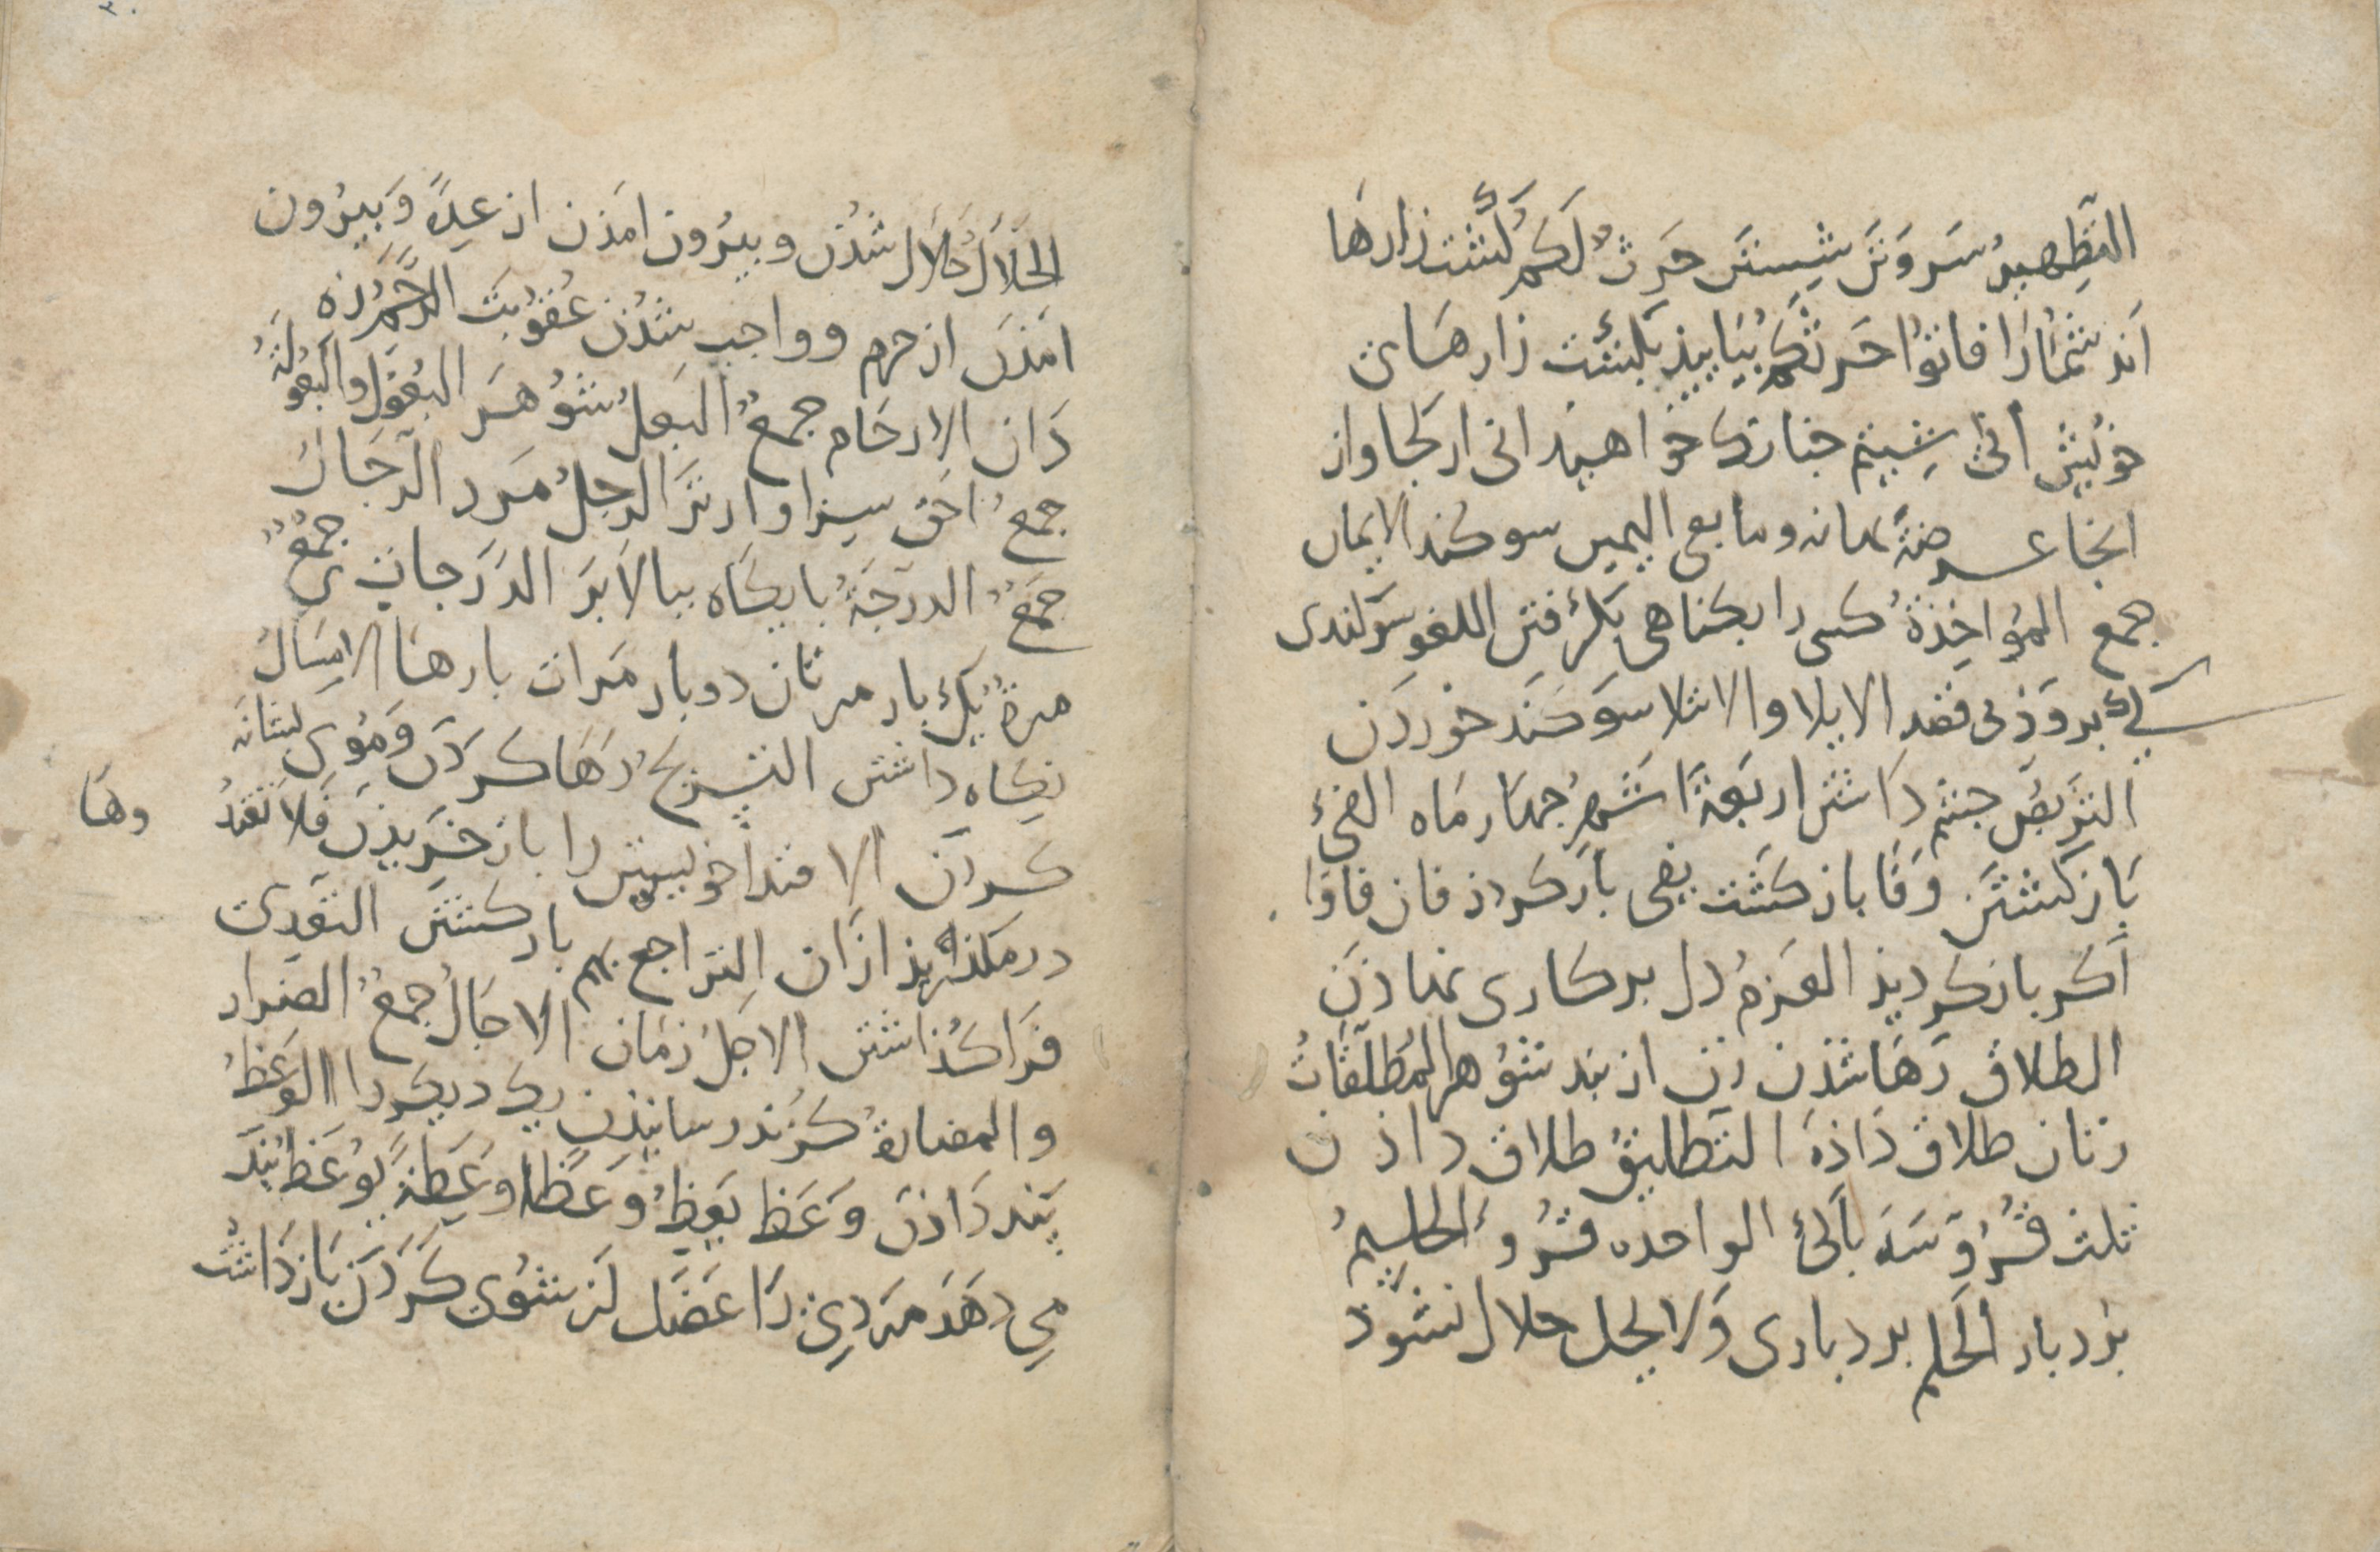 التطهير سَر وَتن شِستن حَرثٌ لَكم كُشت زارهَا
اَند شُمارَا فاتوُا حَرثكم بيَاييذ بكشت زارهَاى
خوُيش انى شِيتم جنانك خواهيد انى از كجا واز
انجا عرضةً بهانه ومابعى اليمين سوكند الايمان
جمع المؤاخِذةُ كسى را بكناهى بكرفتن اللغو سَوكندى
كى بروَذ بى قصد الايلا والايتلا سَوكند خوردَن
التربصّ چشم داشتن اربَعةَ اشهُر چهار ماه الفئ
بَاز كشتن وَفَا باز كشت يفى باز كردذ فان فاوا
اكر باز كرديذ العَزمُ دل بر كارى نهاذن
الطلاق رَهَا شذن زن از بند شوُهر المطلّقَاتُ
زنان طلاق دَاذه التّطليقُ طلاق داذن
ثلث قُرُوَ سَه بَاكى الواحده قُرُو الحليمُ
بُردبار الحَلم بردبارى وَلا يحل حلال نشوذ
الحَلَالَ حَلاَل شذُن وبيرُون امَذن از عِدّة وَبَيرُون
امَذن از حرم وواجب شذُن عُقوُبَت الرَّحِم زه
دَان الارحَام جمعٌ البَعلُ شوُهَر البُعوُل والبُعولَةُ
جمعُ احَق سِزاوارترَ الرجلُ مَرد الرّجَالُ
جَمعٌ الدرَجَةُ بايكَاه ببالاَبرَ الدَرَجات ى جمعٌ
مرةً يَك بار مرتان دوبار مَرات بارهَا الامسَاكُ
نِكَاه داشتن التسريحُ رَهَا كردَن وَموُى بشانَه
كردَن الافتدا خويشتن را باز خَريذن فَلاَ تَعتَدُ وهَا
درمكذريذ ازان التراجع بهم باز كشتن التعَدى
فَرا كُذاشتن الاجلُ زمَان الاجَالُ جمعُ الضرار
والمضارة كُزند رسانيذن يك ديكر را الوَعظُ
پَند دَاذن وَعَظ يَعِظُ وَعظًا وَعِظةً يُوعَظ پَند
مى دهَد مَردى رَا عَضَل لَز شوُى كَردَن باز دَاشت